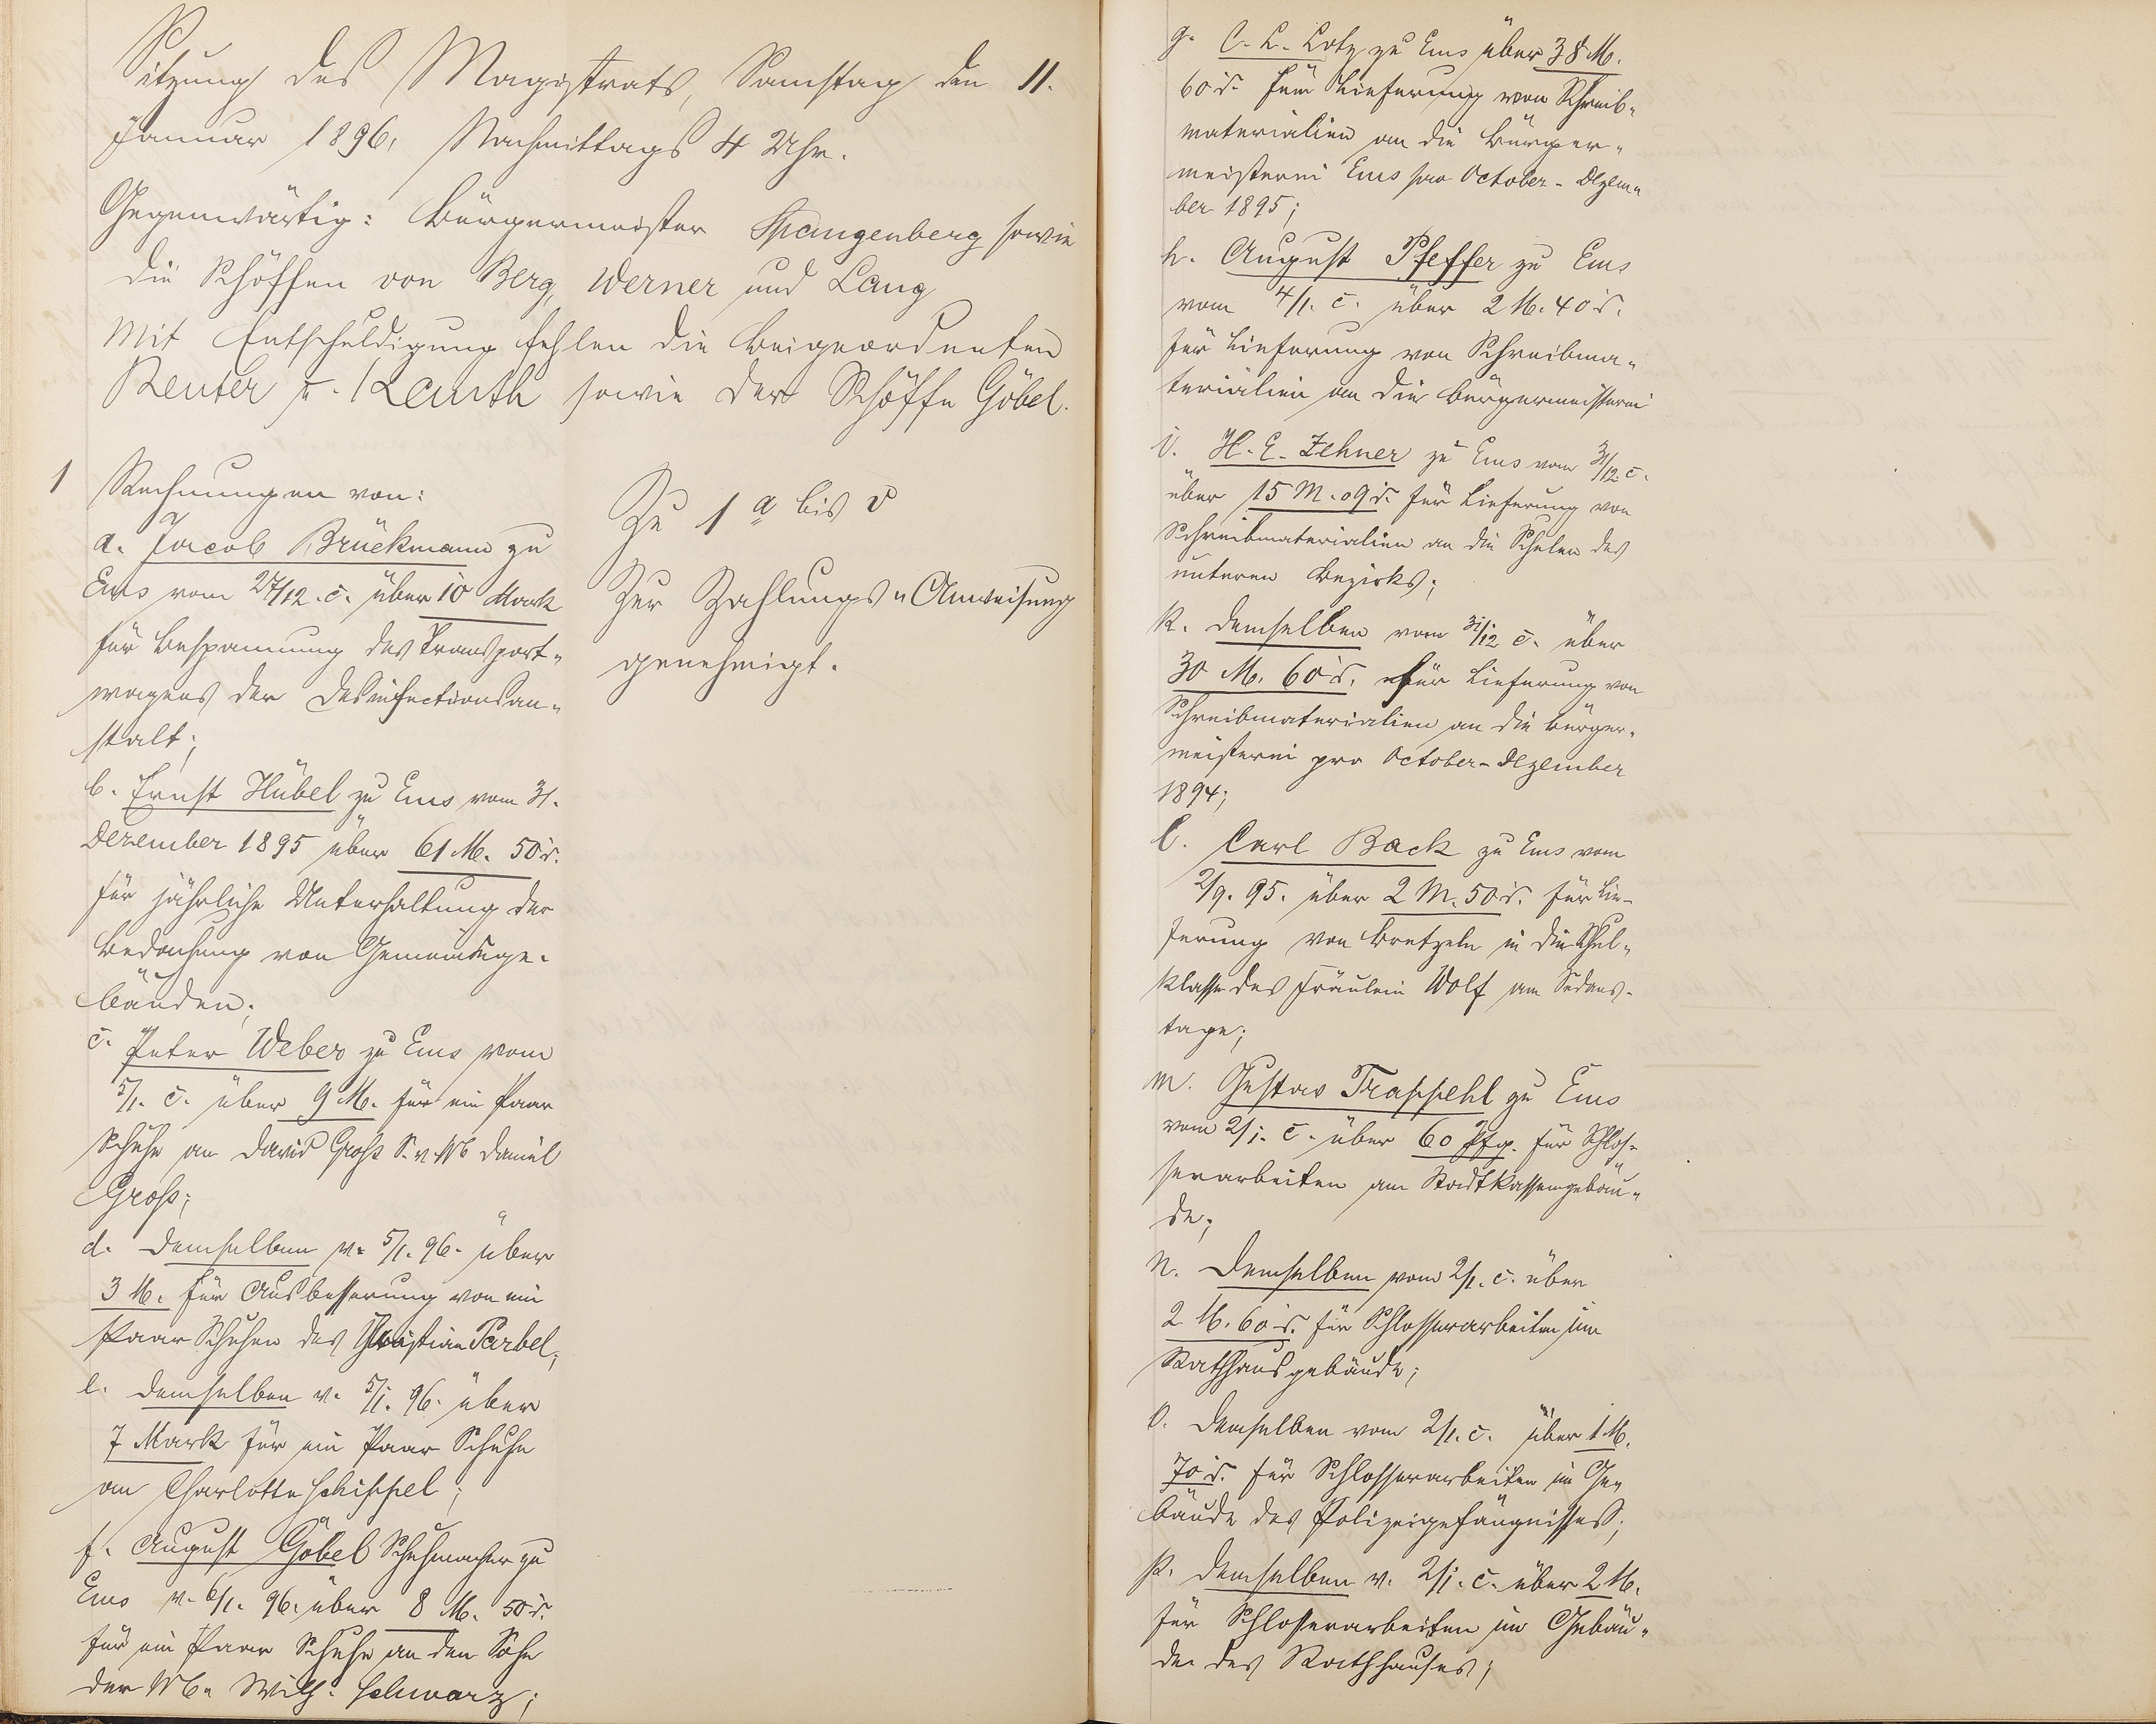 Sitzung des Magistrats, Samstag den 11.
Januar 1896, Nachmittags 4 Uhr.
Gegenwärtig: Bürgermeister Spangenberg sowie
die Schöffen von Berg, Werner und Lang
Mit Entschuldigung fehlen die Beigeordneten
Reuter u. Kauth sowie der Schöffe Göbel.
1 Rechnungen von:
a. Jacob Brückmann zu
Ems vom 27/12. c. über 10 Mark
für Bespannung des Transport-
wagens der Desinfectionsan-
stalt;
b. Ernst Hübel zu Ems vom 31.
Dezember 1895 über 61 M. 50 d.
für jährliche Unterhaltung der
Bedachung von Gemeindege-
bäuden;
c. Peter Weber zu Ems vom
5/1. c. über 9 M. für ein Paar
Schuhe an David Groß S. v. Wb Daniel
Groß;
d. demselben v. 5/1. 96. über
3 M. für Ausbesserung von ein
Paar Schuhen des Christian Parbel;
e. demselben v. 5/1. 96. über
7 Mark für ein Paar Schuhe
an Charlotte Schippel;
f. August Göbel Schuhmacher zu
Ems v. 6/1. 96. über 8 M. 50 d.
für ein Paar Schuhe an den Sohn
der Wb. Wilh. Schwarz;
Zu 1 a bis v
Zur Zahlungs-Anweisung
genehmigt.
g. C. L. Lotz zu Ems über 38 M.
60 d. für Lieferung von Schreib-
materialien an die Bürger-
meisterei Ems pro October-Dezem-
ber 1895;
h. August Pfeffer zu Ems
vom 4/1. c. über 2 M. 40 d.
für Lieferung von Schreibma-
terialien an die Bürgermeisterei
i. H. E. Zehner zu Ems vom 31/12 c.
über 15 M. 09 d. für Lieferung von
Schreibmaterialien an die Schulen des
unteren Bezirks;
k. demselben vom 31/12 c. über
30 M. 60 d. für Lieferung von
Schreibmaterialien an die Bürger-
meisterei pro October-Dezember
1894;
l. Carl Back zu Ems vom
2/9. 95. über 2 M. 50 d. für Lie-
ferung von Bretzeln in die Schul-
klasse des Fräulein Wolf am Sedans-
tage;
m. Gustav Trappehl zu Ems
vom 2/1. c. über 60 Pfg. für Schlos-
serarbeiten am Stadtkassengebäu-
de;
n. demselben vom 2/1. c. über
2 M. 60 d. für Schlosserarbeiten im
Rathhausgebäude;
o. demselben vom 2/1. c. über 1 M.
70 d. für Schlosserarbeiten im Ge-
bäude des Polizeigefängnisses;
p. demselben v. 2/1. c. über 2 M.
für Schlosserarbeiten im Gebäu-
de des Rathhauses;